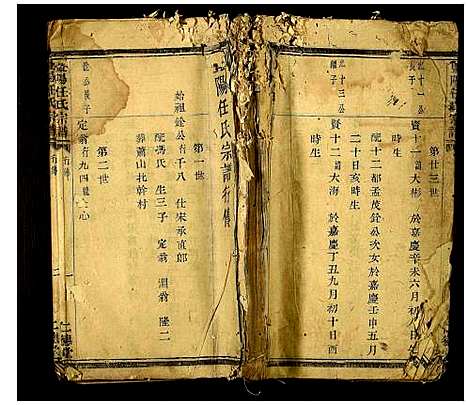 第廿三世
賢十一諱大彬 於嘉慶辛未六月初八日
時生
配十二都孟茂銓公次女於嘉慶壬申五月
二十日亥時生
賢十二諱大海 於嘉慶丁丑九月初十日酉
時生
陽任氏宗譜行傳
第一世
始祖銓公行千八 仕宋承直郎
配馮氏 生三子 定翁 淵翁 隆二
葬蕭山北幹村
第二世
銓公長子
定翁行九四
陽任氏宗譜
行傳
一